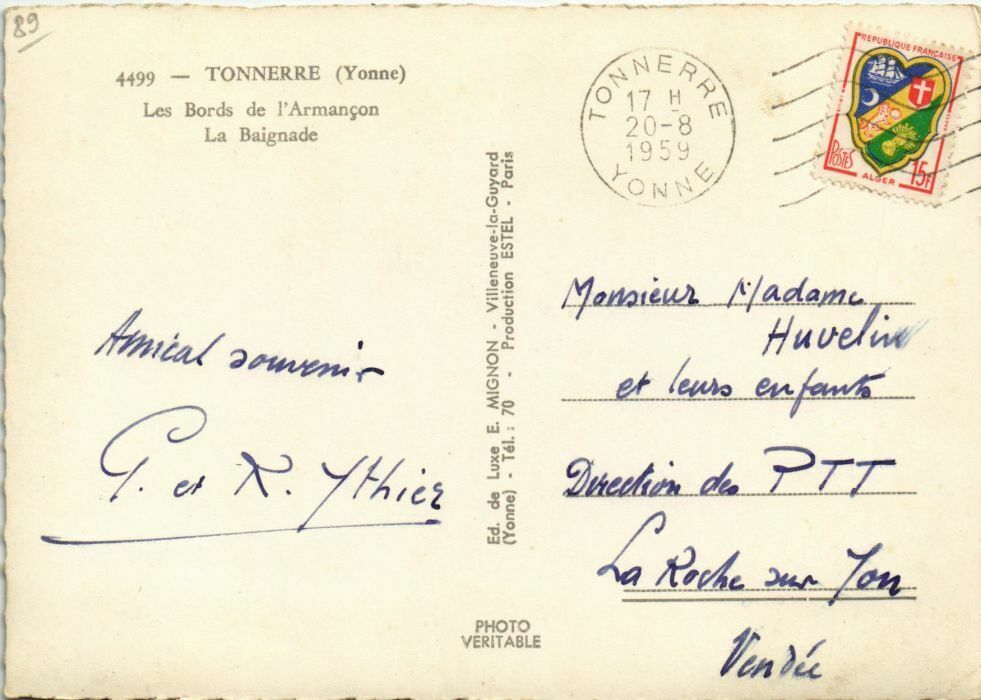 89
4499 — TONNERRE (Yonne)
Les Bords de l'Armançon
La Baignade
Amical souvenir
G. et R. Ythier
Ed. de Luxe E. MIGNON - Villeneuve-la-Guyard
(Yonne) - Tél. : 70 - Production ESTEL - Paris
PHOTO
VERITABLE
TONNERRE
17 H
20-8
1959
YONNE
REPUBLIQUE FRANÇAISE
POSTES
ALGER
15F
Monsieur Madame
Huvelin
et leurs enfants
Direction des PTT
La Roche sur Yon
Vendée